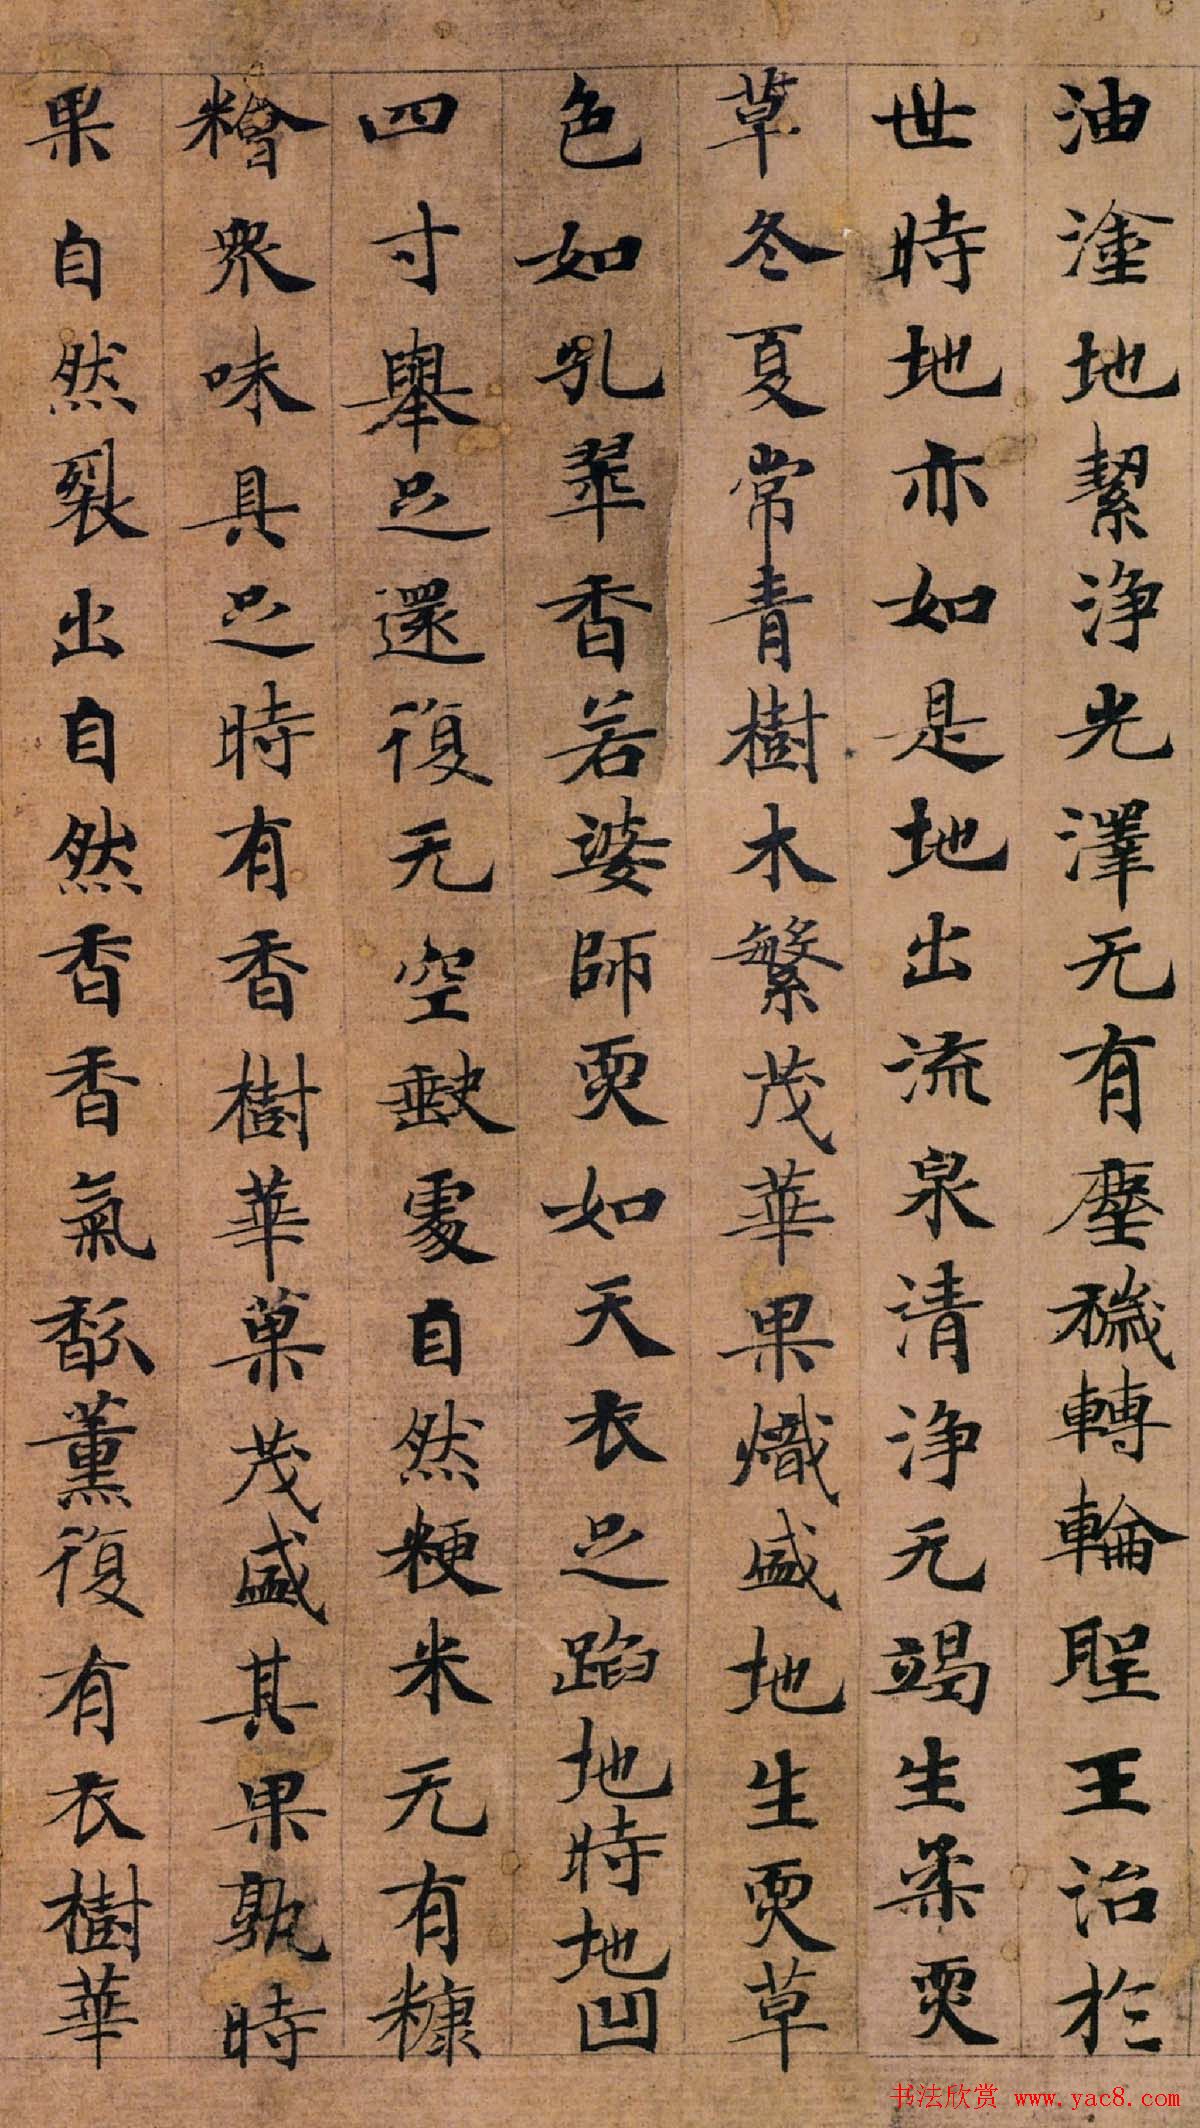 油塗地絜浄光澤无有塵穢轉輪聖王治於
世時地亦如是地出流泉清浄无竭生柔耎
草冬夏常青樹木繁茂華果熾盛地生耎草
色如孔翠香若婆師耎如天衣足蹈地時地凹
四寸舉足還復无空缺處自然粳米无有糠
糩衆味具足時有香樹華菓茂盛其果孰時
果自然裂出自然香香氣馛薰復有衣樹華
书法欣赏 www.yac8.com